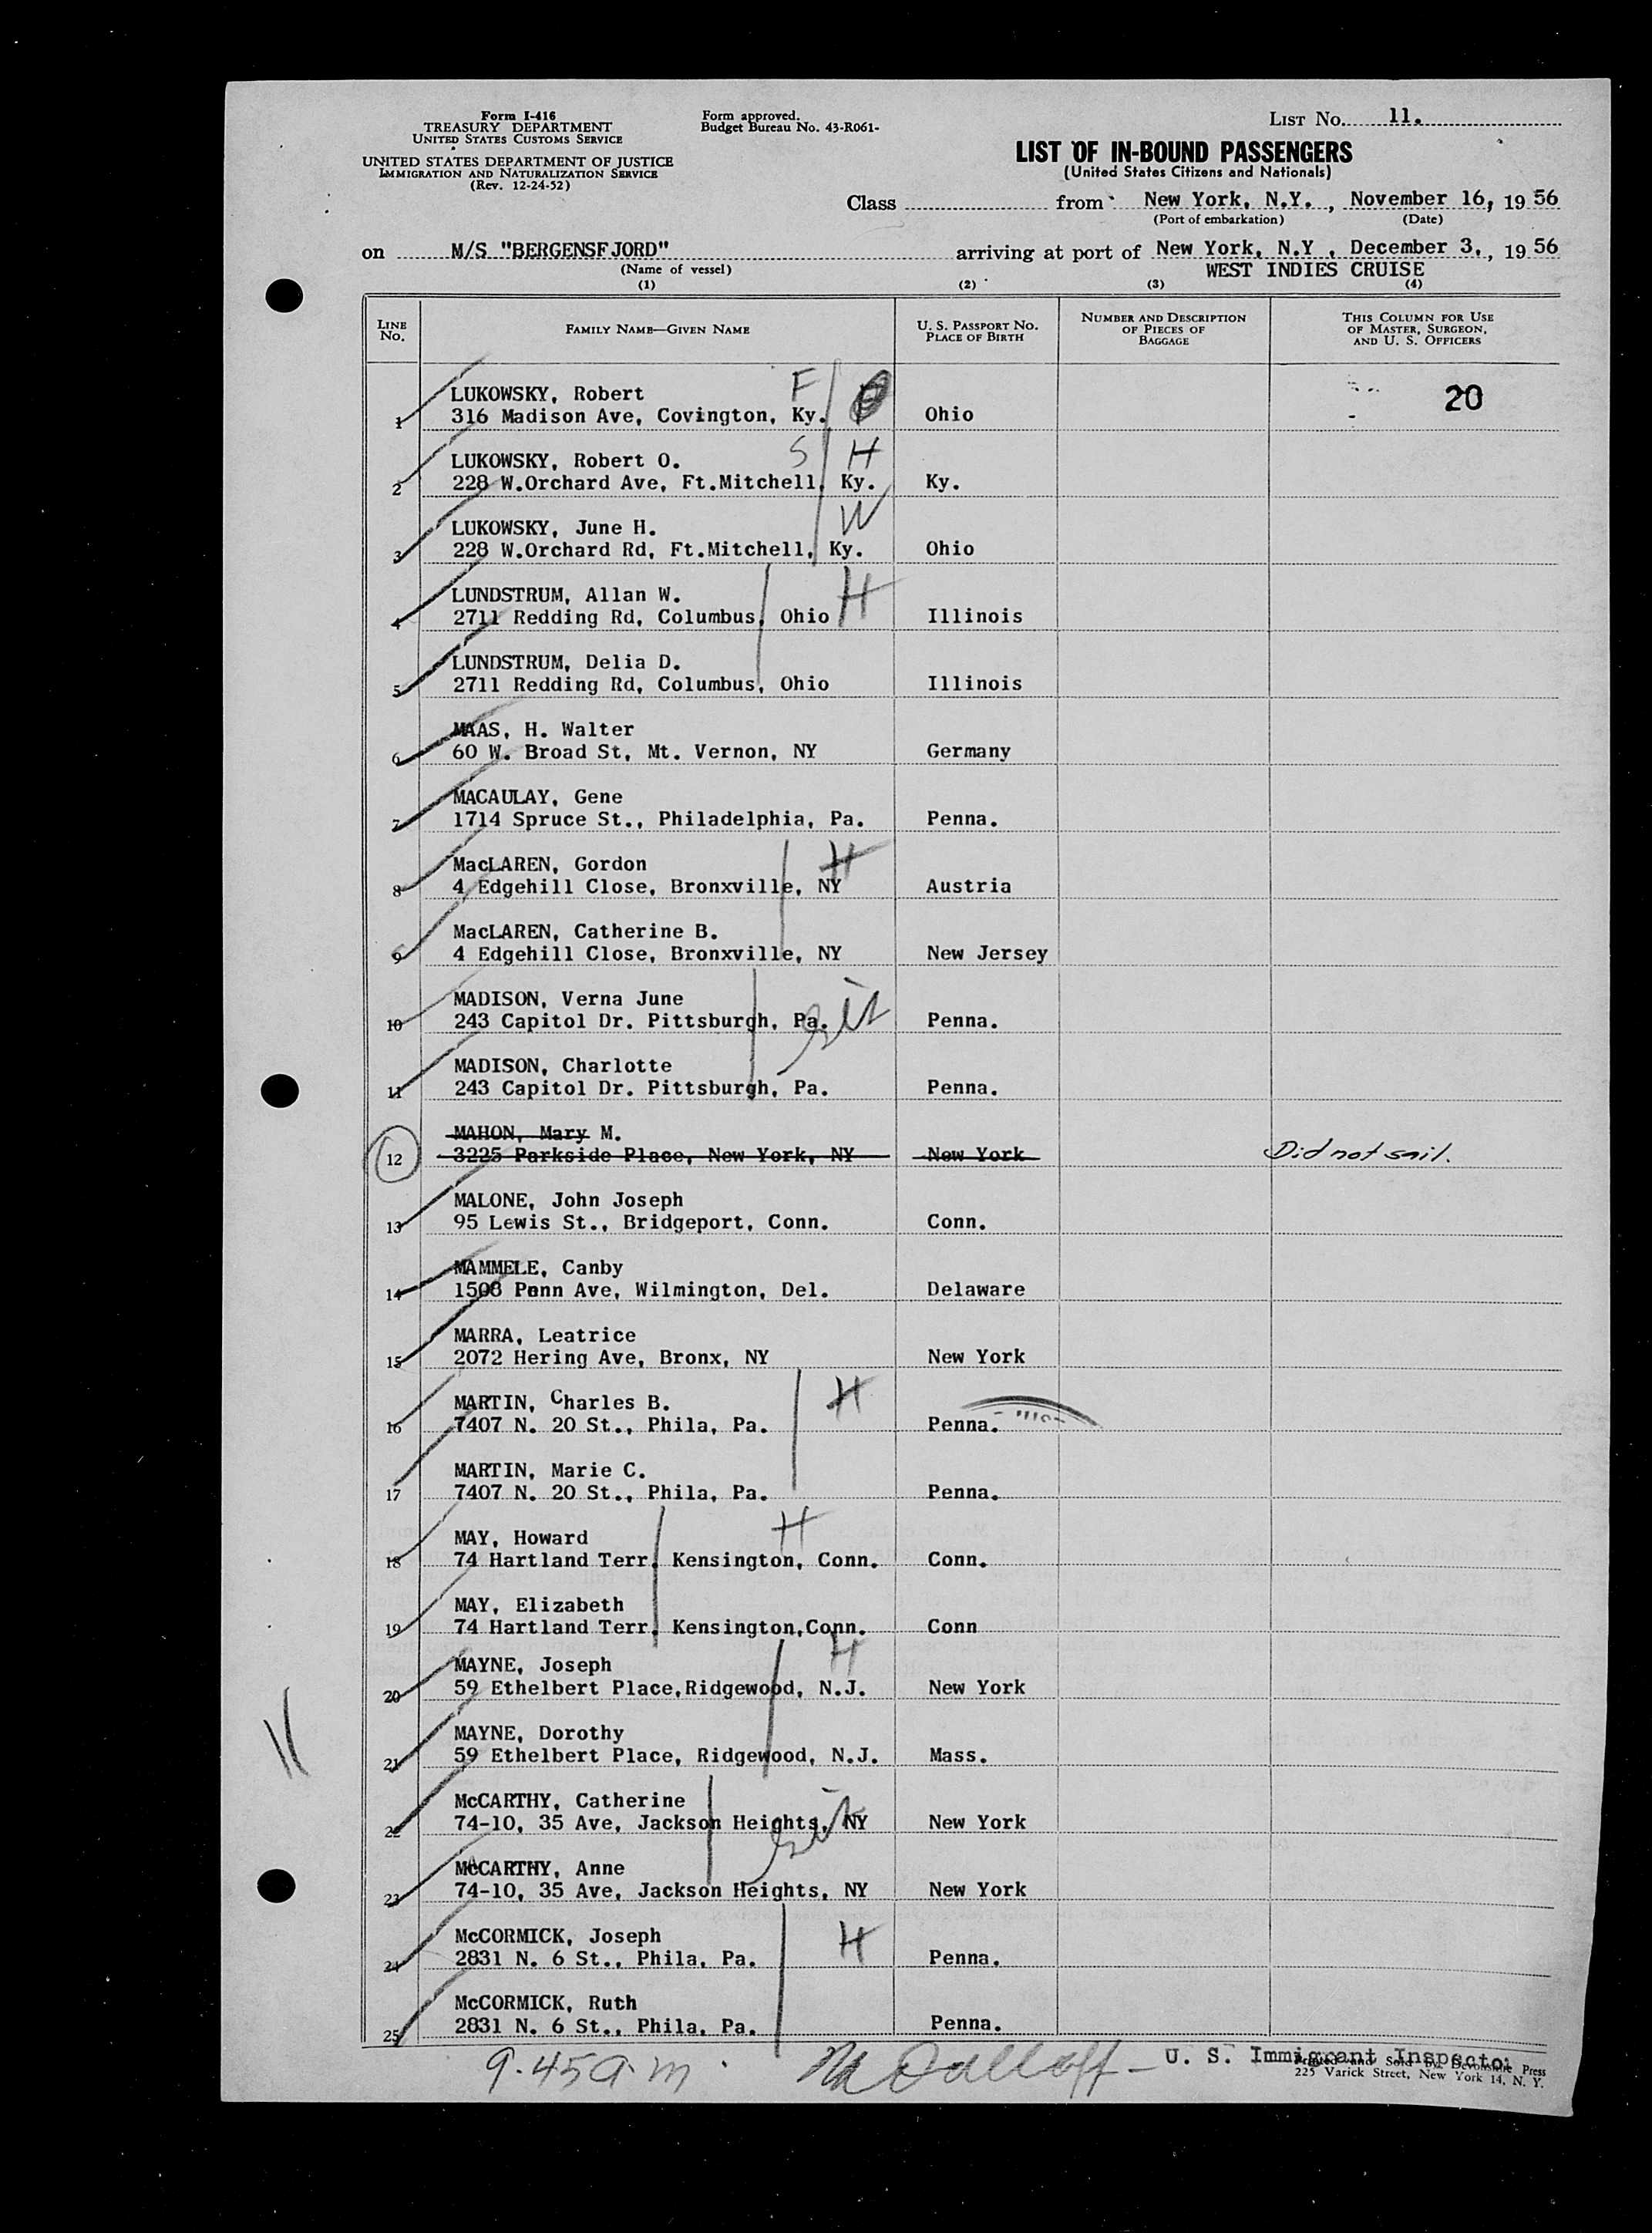 Form I-416
TREASURY DEPARTMENT
UNITED STATES CUSTOMS SERVICE
UNITED STATES DEPARTMENT OF JUSTICE
IMMIGRATION AND NATURALIZATION SERVICE
(Rev. 12-24-52)
Form approved.
Budget Bureau No. 43-R061-
LIST No. 11.
LIST OF IN-BOUND PASSENGERS
(United States Citizens and Nationals)
Class from New York, N.Y. , November 16, 19 56
(Port of embarkation) (Date)
on M/S "BERGENSFJORD" arriving at port of New York, N.Y , December 3., 19 56
(Name of vessel) WEST INDIES CRUISE
(1) (2) (3) (4)
LINE No. FAMILY NAME—GIVEN NAME U. S. PASSPORT NO. PLACE OF BIRTH NUMBER AND DESCRIPTION OF PIECES OF BAGGAGE THIS COLUMN FOR USE OF MASTER, SURGEON, AND U. S. OFFICERS
LUKOWSKY, Robert F 20
1 316 Madison Ave, Covington, Ky. Ohio
LUKOWSKY, Robert O. S H
2 228 W.Orchard Ave, Ft.Mitchell, Ky. Ky.
LUKOWSKY, June H. W
3 228 W.Orchard Rd, Ft.Mitchell, Ky. Ohio
LUNDSTRUM, Allan W. H
4 2711 Redding Rd, Columbus, Ohio Illinois
LUNDSTRUM, Delia D.
5 2711 Redding Rd, Columbus, Ohio Illinois
MAAS, H. Walter
6 60 W. Broad St, Mt. Vernon, NY Germany
MACAULAY, Gene
7 1714 Spruce St., Philadelphia, Pa. Penna.
MacLAREN, Gordon H
8 4 Edgehill Close, Bronxville, NY Austria
MacLAREN, Catherine B.
9 4 Edgehill Close, Bronxville, NY New Jersey
MADISON, Verna June
10 243 Capitol Dr. Pittsburgh, Pa. Penna.
MADISON, Charlotte
11 243 Capitol Dr. Pittsburgh, Pa. Penna.
MAHON, Mary M.
12 3225 Parkside Place, New York, NY New York Did not sail.
MALONE, John Joseph
13 95 Lewis St., Bridgeport, Conn. Conn.
MAMMELE, Canby
14 1508 Penn Ave, Wilmington, Del. Delaware
MARRA, Leatrice
15 2072 Hering Ave, Bronx, NY New York
MARTIN, Charles B. H
16 7407 N. 20 St., Phila, Pa. Penna.
MARTIN, Marie C.
17 7407 N. 20 St., Phila, Pa. Penna.
MAY, Howard H
18 74 Hartland Terr. Kensington, Conn. Conn.
MAY, Elizabeth
19 74 Hartland Terr. Kensington,Conn. Conn
MAYNE, Joseph H
20 59 Ethelbert Place,Ridgewood, N.J. New York
MAYNE, Dorothy
21 59 Ethelbert Place, Ridgewood, N.J. Mass.
McCARTHY, Catherine
22 74-10, 35 Ave, Jackson Heights, NY New York
McCARTHY, Anne
23 74-10, 35 Ave, Jackson Heights, NY New York
McCORMICK, Joseph H
24 2831 N. 6 St., Phila, Pa. Penna.
McCORMICK, Ruth
25 2831 N. 6 St., Phila, Pa. Penna.
9.45 a m. U. S. Immigrant Inspector
Printed and Sold by Devonshire Press
225 Varick Street, New York 14, N. Y.